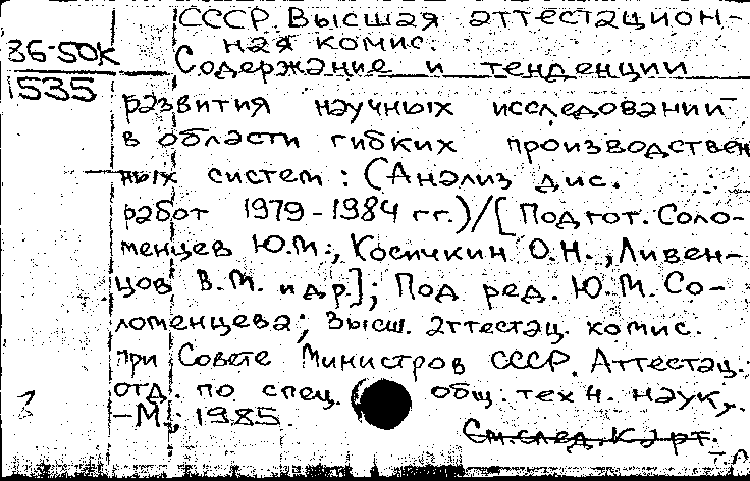 СССР. Высшая аттестацион-
ная комис.
86-50К
1535
Содержание и тенденции
развития научных исследований
в области гибких производствен
ных систем: (Анализ дис.
работ 1979-1984 гг.)/[Подгот. Соло-
менцев Ю.М., Косичкин О.Н., Ливен-
цов В.М. и др.]; Под ред. Ю.М. Со-
ломенцева; Высш. аттестац. комис.
при Совете Министров СССР. Аттестац.
отд. по спец. общ. техн. наук,
-М., 1985.
См.след.карт.